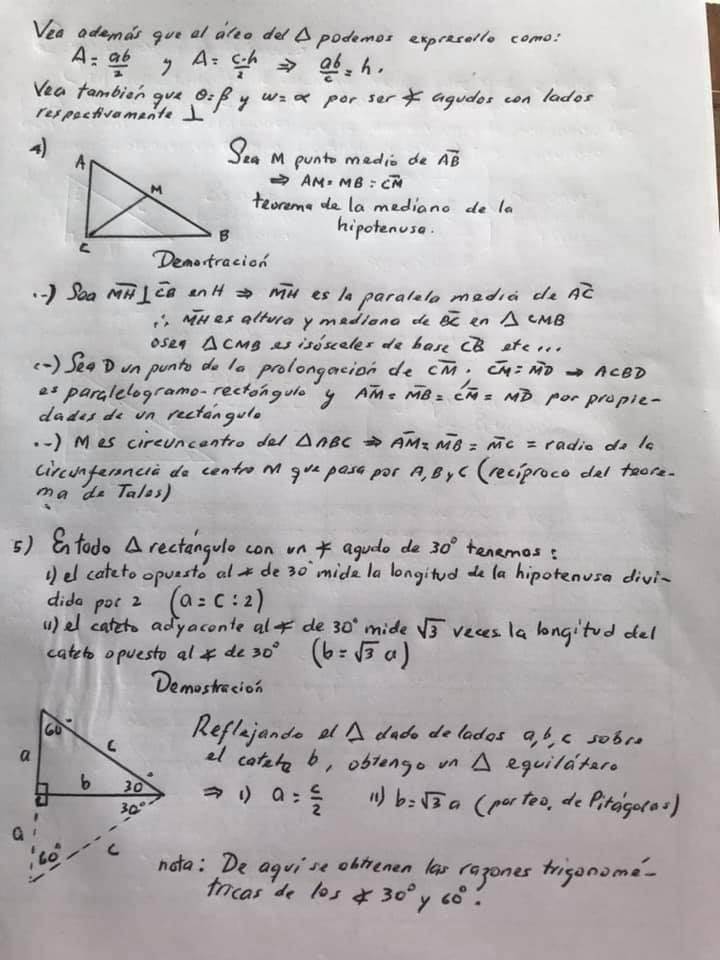 Vea además que el área del Δ podemos expresarlo como:
A = ab/2 y A = c·h/2 ⇒ ab/c = h.
Vea también que θ=β y ω=α por ser ∢ agudos con lados
respectivamente ⊥
4)
Sea M punto medio de AB
⇒ AM = MB = CM
teorema de la mediana de la
hipotenusa.
A
M
C
B
Demostración
·-) Sea MH ⊥ CB en H ⇒ MH es la paralela media de AC
∴ MH es altura y mediana de BC en Δ CMB
osea Δ CMB es isósceles de base CB etc...
·-) Sea D un punto de la prolongación de CM. CM = MD → ACBD
es paralelogramo-rectángulo y AM = MB = CM = MD por propie-
dades de un rectángulo
·-) M es circuncentro del ΔABC ⇒ AM = MB = MC = radio de la
circunferencia de centro M que pasa por A, B y C (recíproco del teore-
ma de Tales)
5) En todo Δ rectángulo con un ∢ agudo de 30° tenemos:
i) el cateto opuesto al ∢ de 30° mide la longitud de la hipotenusa divi-
dida por 2 (a = c : 2)
ii) el cateto adyacente al ∢ de 30° mide √3 veces la longitud del
cateto opuesto al ∢ de 30° (b = √3 a)
Demostración
60°
a
c
b
30°
30°
a
60°
c
Reflejando el Δ dado de lados a, b, c sobre
el cateto b, obtengo un Δ equilátero
⇒ i) a = c/2 ii) b = √3 a (por teo. de Pitágoras)
nota: De aquí se obtienen las razones trigonomé-
tricas de los ∢ 30° y 60°.